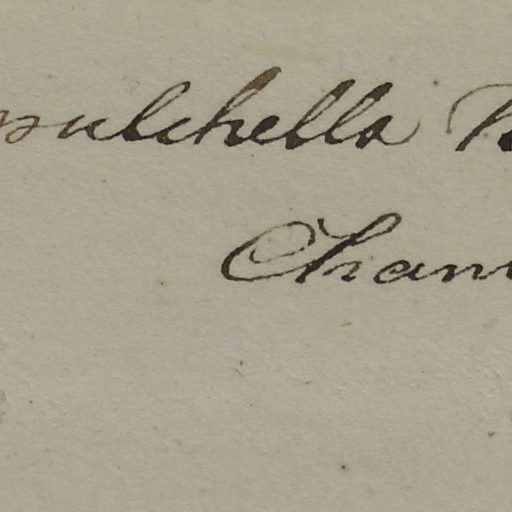 pulchella
Cham